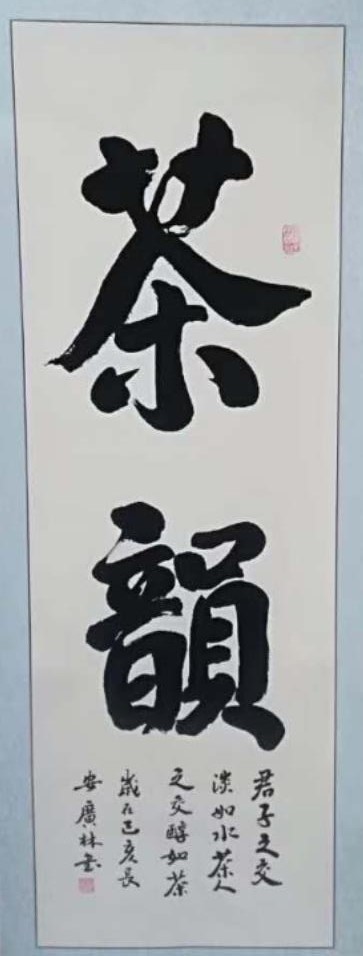 茶韻
君子之交
淡如水茶人
之交醇如茶
歲在己亥長
安廣林書